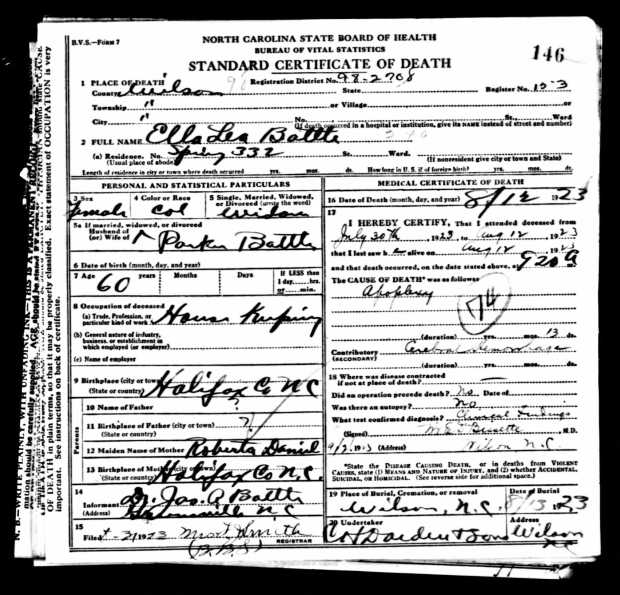 B.V.S.—FORM 7
NORTH CAROLINA STATE BOARD OF HEALTH
BUREAU OF VITAL STATISTICS
STANDARD CERTIFICATE OF DEATH
146
1 PLACE OF DEATH
Registration District No. 98-2708
County Wilson State Register No. 153
Township " or Village or
City " No. St., Ward
(If death occurred in a hospital or institution, give its NAME instead of street and number)
2 FULL NAME Ella Lea Battle
(a) Residence. No. Spring 332 St. Ward.
(Usual place of abode) (If nonresident give city or town and State)
Length of residence in city or town where death occurred yrs. mos. ds. How long in U. S. if of foreign birth? yrs. mos. ds.
PERSONAL AND STATISTICAL PARTICULARS
3 Sex 4 Color or Race 5 Single, Married, Widowed, or Divorced (write the word)
female col widow
5a If married, widowed, or divorced
Husband of
(or) Wife of Parker Battle
6 Date of birth (month, day, and year)
7 Age 60 years Months Days IF LESS than
1 day hrs.
or min.
8 Occupation of deceased
(a) Trade, Profession, or
particular kind of work House Keeping
(b) General nature of industry,
business, or establishment in
which employed (or employer)
(c) Name of employer
9 Birthplace (city or town) Halifax Co NC
(State or country)
Parents
10 Name of Father ?
11 Birthplace of Father (city or town) ?
(State or country)
12 Maiden Name of Mother Roberta Daniel
13 Birthplace of Mother (city or town)
(State or country) Halifax Co N.C.
14
Informant Dr. Jas. A Battle
(Address) Greenville N.C
15
Filed 1923
REGISTRAR
MEDICAL CERTIFICATE OF DEATH
16 Date of Death (month, day, and year) 8/12 1923
17
I HEREBY CERTIFY, That I attended deceased from
July 30th 1923 to Aug 12 1923
that I last saw h alive on Aug 12 1923
and that death occurred, on the date stated above, at 920 a
The CAUSE OF DEATH was as follows
Apoplexy
74
(duration) yrs. mos. 13 ds.
Contributory Cerebral Hemorrhage
(SECONDARY)
(duration) yrs. mos. ds.
18 Where was disease contracted
if not at place of death?
Did an operation precede death? No Date of
Was there an autopsy? No
What test confirmed diagnosis? Clinical Findings
(Signed) M.D.
(Address) Wilson N.C.
*State the DISEASE CAUSING DEATH, or in deaths from VIOLENT
CAUSES, state (1) MEANS AND NATURE OF INJURY, and (2) whether ACCIDENTAL,
SUICIDAL, OR HOMICIDAL. (See reverse side for additional space.)
19 Place of Burial, Cremation, or removal Date of Burial
Wilson, N.C. 8/13 1923
20 Undertaker Address
C H Darden & Son Wilson
NC
N. B.—WRITE PLAINLY, WITH UNFADING INK—THIS IS A PERMANENT RECORD.
AGE should be stated
mation should be carefully supplied.
OF DEATH in plain terms, so that it may be properly classified. Exact statement of OCCUPATION is very
important. See instructions on back of certificate.